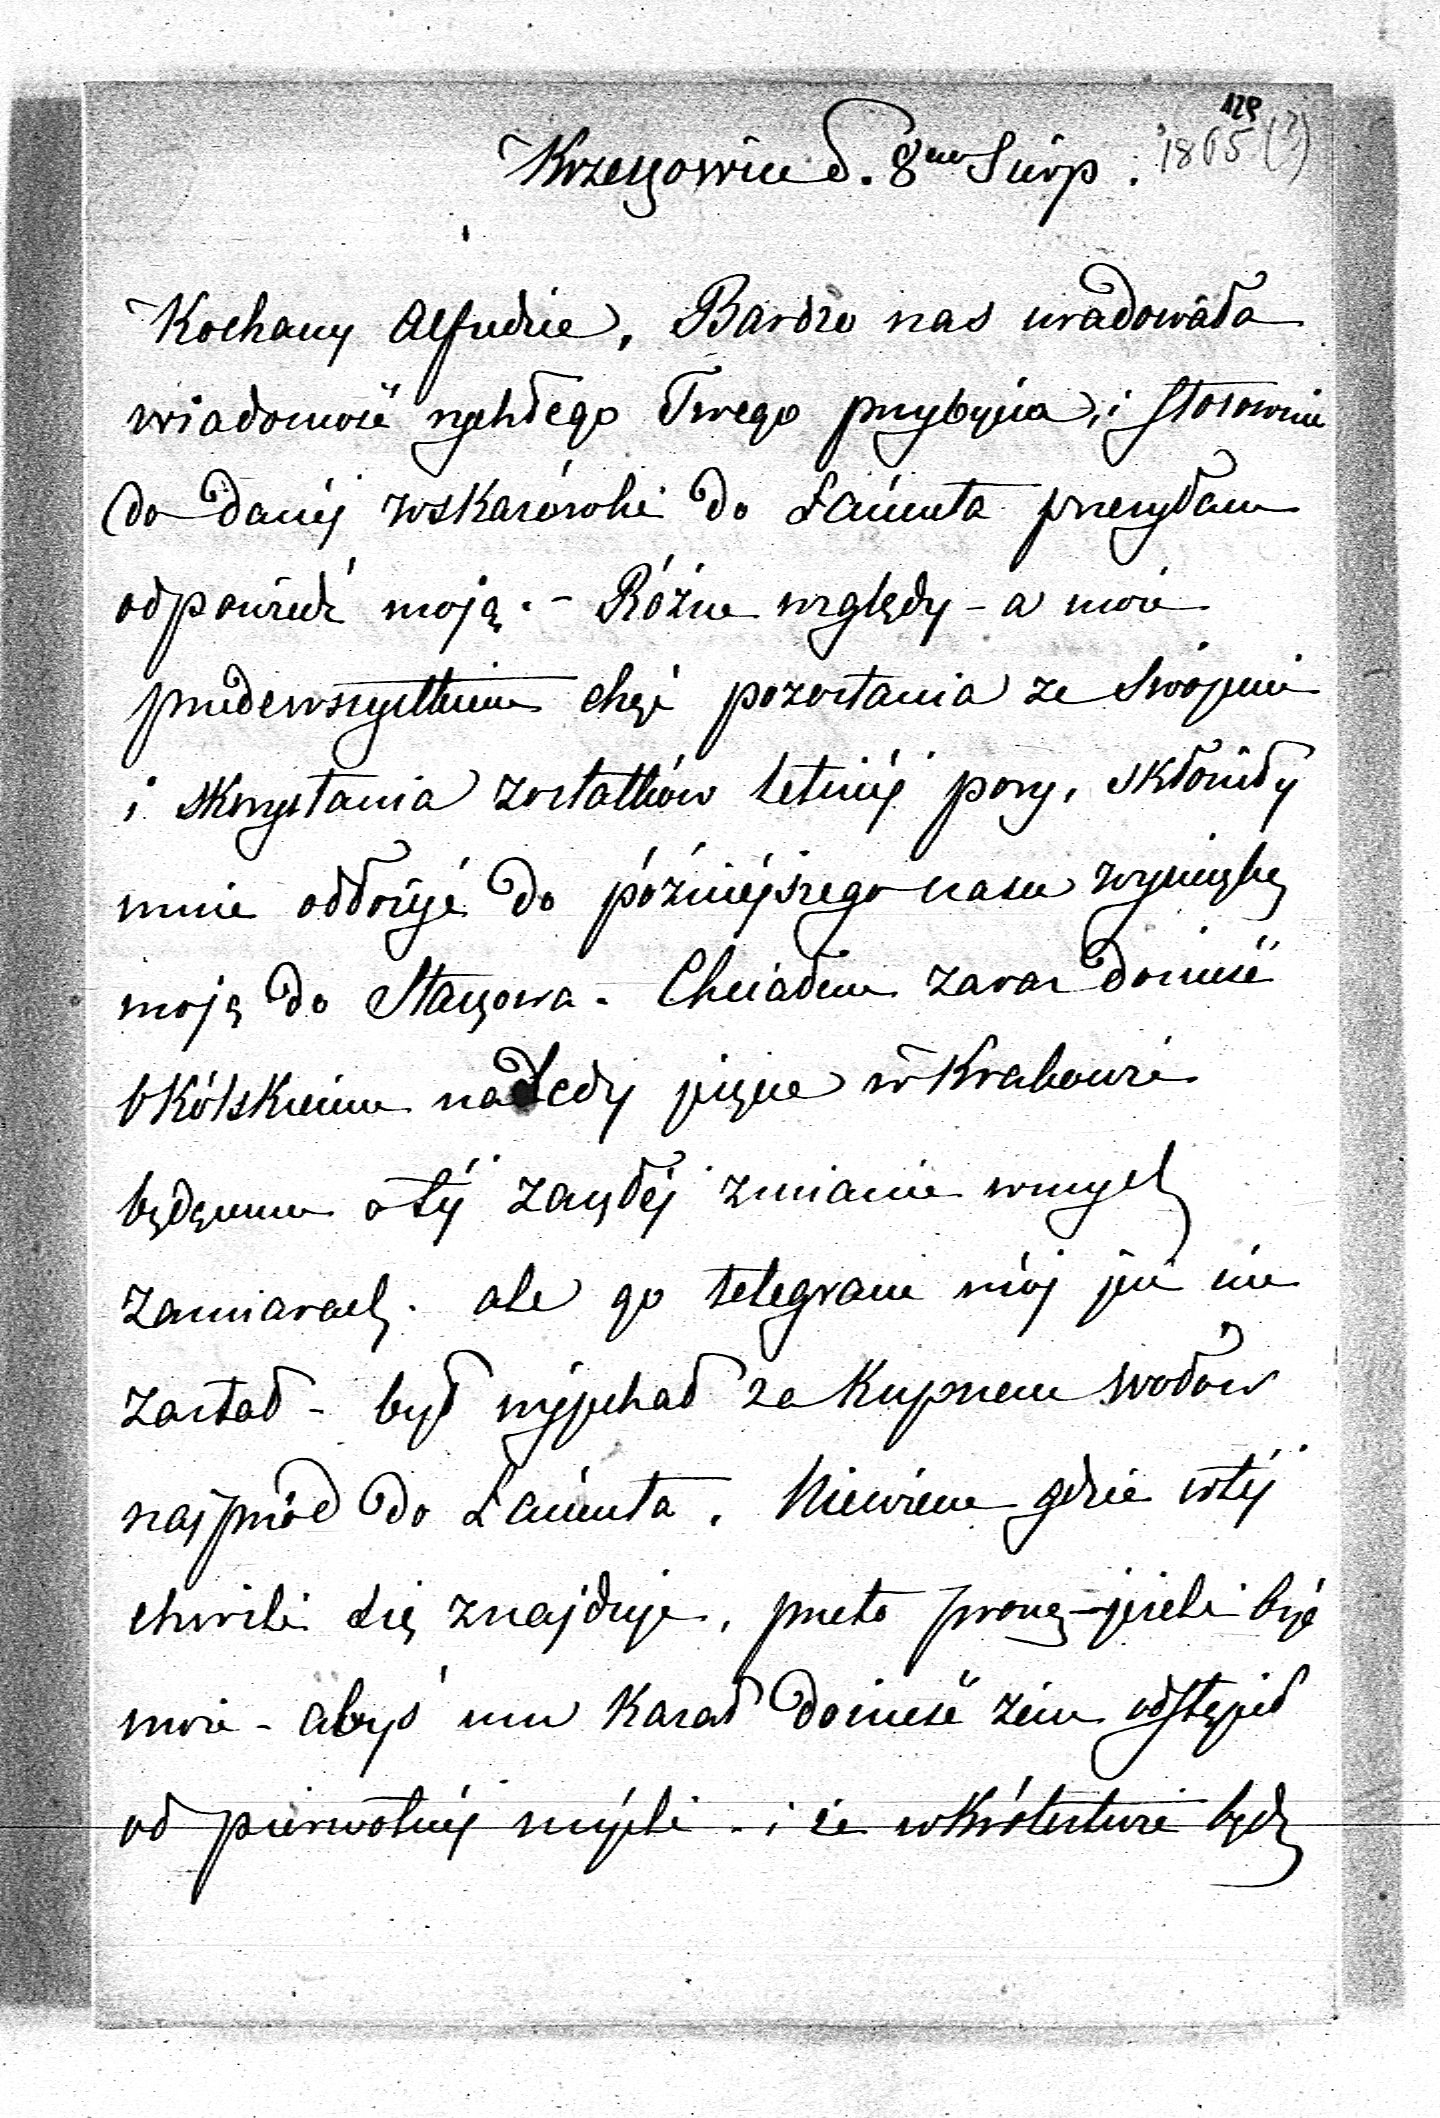 129
Krzeszowice d. 8go Sierp. 1865 (?)
Kochany Alfredzie, Bardzo nas uradowała
wiadomość rychłego Twego przybycia, i stosownie
do danéj wskazówki do Łańcuta przesyłam
odpowiedź moją. - Różne względy - a może
przedewszystkiem chęć pozostania ze swojemi
i skorzystania zostatków letniéj pory, skłoniły
mnie odłożyć do późniéjszego czasu wycieczkę
moją do Staszowa. Chciałem zaraz donieść
 wtedy jeszcze w Krakowie
będącemu o téj zaszłéj zmianie w mych
zamiarach. ale go telegram mój już nie
zastał - był wyjechał za kupnem wołów
najprzód do Łańcuta. Niewiem gdzie wtéj
chwili się znajduje, przeto proszę - jeżeli być
może - abyś mu kazał donieść żem odstąpił
od pierwotnéj myśli - i że wkrótcetwie będę